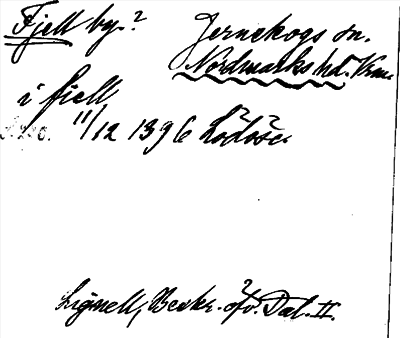 Fjell by.? Jernskogs sn.
Nordmarks hd. Vrm.
i fiell
11/12 1396 Lödöse.
Lignell, Beskr. öfv. Dal. II.